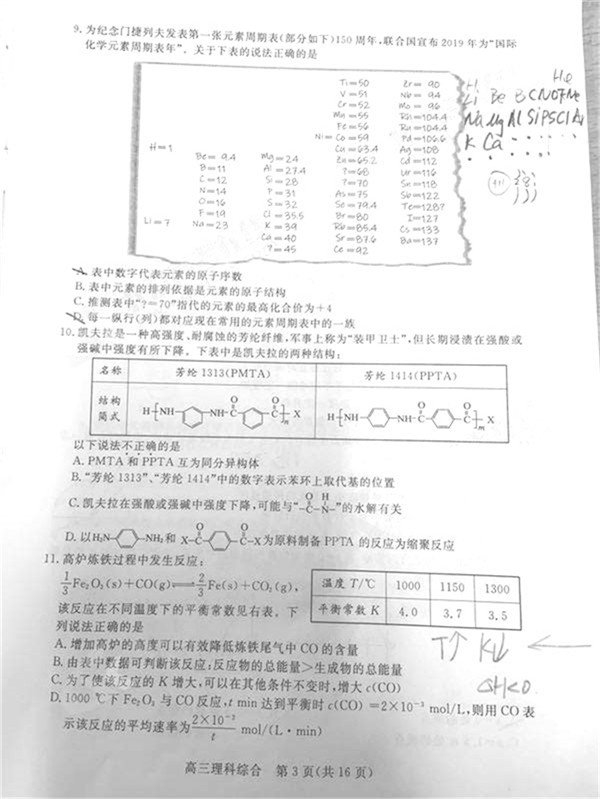 9. 为纪念门捷列夫发表第一张元素周期表(部分如下)150 周年,联合国宣布 2019 年为“国际
化学元素周期表年”。关于下表的说法正确的是
Ti=50 Zr= 90
V=51 Nb= 94
Cr=52 Mo= 96
Mn=55 Rh=104.4
Fe=56 Ru=104.4
Ni=Co=59 Pd=106.6
H=1 Cu=63.4 Ag=108
Be= 9.4 Mg=24 Zn=65.2 Cd=112
B=11 Al=27.4 ?=68 Ur=116
C=12 Si=28 ?=70 Sn=118
N=14 P=31 As=75 Sb=122
O=16 S=32 Se=79.4 Te=128?
F=19 Cl=35.5 Br=80 I=127
Li=7 Na=23 K=39 Rb=85.4 Cs=133
Ca=40 Sr=87.6 Ba=137
?=45 Ce=92
H He
Li Be B C N O F Ne
Na Mg Al Si P S Cl Ar
K Ca
A. 表中数字代表元素的原子序数
B. 表中元素的排列依据是元素的原子结构
C. 推测表中“?=70”指代的元素的最高化合价为+4
D. 每一纵行(列)都对应现在常用的元素周期表中的一族
10. 凯夫拉是一种高强度、耐腐蚀的芳纶纤维,军事上称为“装甲卫士”,但长期浸渍在强酸或
强碱中强度有所下降。下表中是凯夫拉的两种结构:
名称 芳纶 1313(PMTA) 芳纶 1414(PPTA)
结构简式 H[NH NH-C C]n X H[NH NH-C C]m X
O O O O
以下说法不正确的是
A. PMTA 和 PPTA 互为同分异构体
B. “芳纶 1313”、“芳纶 1414”中的数字表示苯环上取代基的位置
O H
C. 凯夫拉在强酸或强碱中强度下降,可能与“-C-N-”的水解有关
O O
D. 以H₂N- -NH₂ 和 X-C- -C-X为原料制备 PPTA 的反应为缩聚反应
11. 高炉炼铁过程中发生反应:
1/3 Fe₂O₃(s)+CO(g)⇌2/3 Fe(s)+CO₂(g),
该反应在不同温度下的平衡常数见右表。下
列说法正确的是
温度 T/℃ 1000 1150 1300
平衡常数 K 4.0 3.7 3.5
T↑ K↓ ←
A. 增加高炉的高度可以有效降低炼铁尾气中 CO 的含量
B. 由表中数据可判断该反应:反应物的总能量>生成物的总能量
C. 为了使该反应的 K 增大,可以在其他条件不变时,增大 c(CO)
ΔH<0
D. 1000 ℃下 Fe₂O₃ 与 CO 反应,t min 达到平衡时 c(CO) =2×10⁻³ mol/L,则用 CO 表
示该反应的平均速率为 2×10⁻³/t mol/(L·min)
高三理科综合 第 3 页(共 16 页)